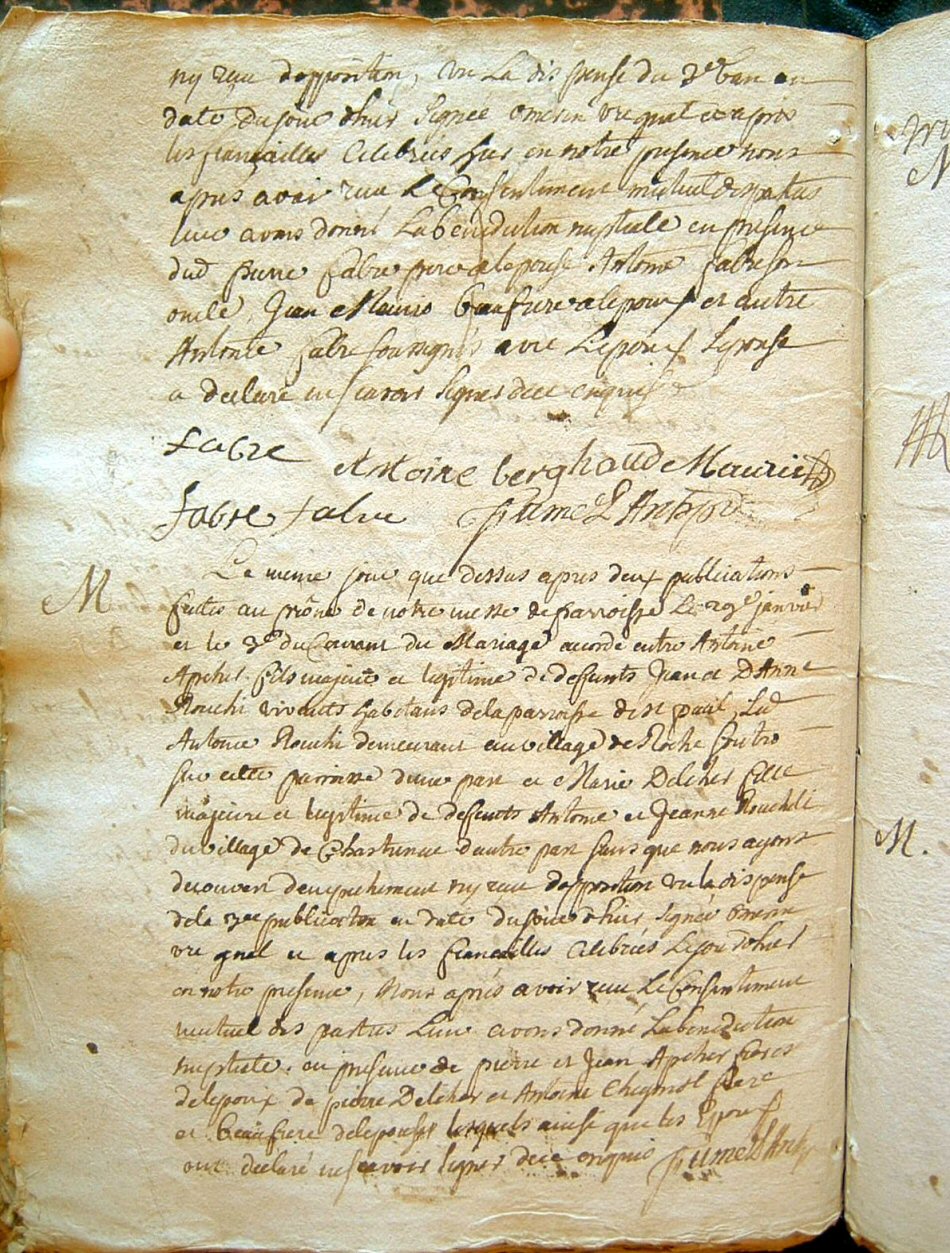 ny reçu d'opposition, vu la dispense du 3e ban en
date du jour d'hier signée vre gnal et après
les fiançailles célébrées hier en notre présence nous
après avoir reçu le Consentement mutuel des parties
leur avons donné la bénédiction nuptiale en présence
dud pierre fabre père de lepouse Antoine fabre son
oncle, Jean Mauris beaufrere de lepoux et autre
Antoine fabre soussignés avec Lepoux Lepouse
a declaré ne scavoir signer de ce enquise
fabre Antoine berghaud Maurie
fabre fabre
M
Le meme jour que dessus apres deux publications
faites au prône de notre messe de parroisse Le 29e janvier
et le 3e du Courant du Mariage accordé entre Antoine
Apcher fils majeur et legitime de deffunts Jean et D'Anne
Rouchi vivants habitans de la parroisse de st paul, Led
Antoine Rouchi demeurant au village de Roche
sur cette parroisse d'une part et Marie Delcher fille
majeure et legitime de deffunts Antoine et Jeanne
du village de d'autre part sans que nous ayons
decouvert d'empechement ny reçu d'opposition vu la dispense
de la 3me publication en date du jour d'hier signée
vre gnal et apres les fiancailles celebrées Le jour d'hier
en notre presence, Nous après avoir reçu Le Consentement
mutuel des parties Leur avons donné La benediction
nuptiale. en presence de pierre et Jean Apcher freres
de lepoux de pierre Delcher et Antoine frere
et beaufrere de lepouse lesquels ainsi que les Epoux
ont declaré ne scavoir signer de ce enquis
M
M.